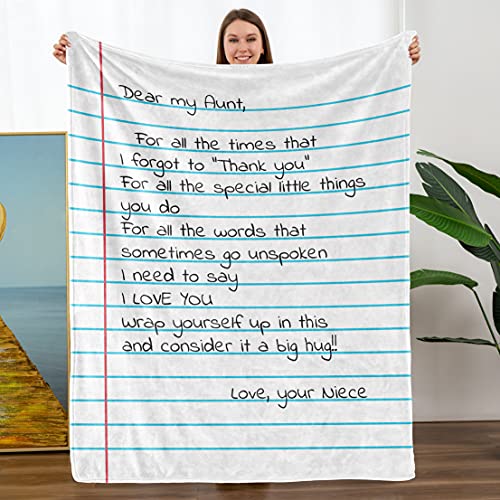 Dear my Aunt,
For all the times that
I forgot to "Thank you"
For all the special little things
you do
For all the words that
sometimes go unspoken
I need to say
I LOVE YOU
wrap yourself up in this
and consider it a big hug!!
Love, your Niece